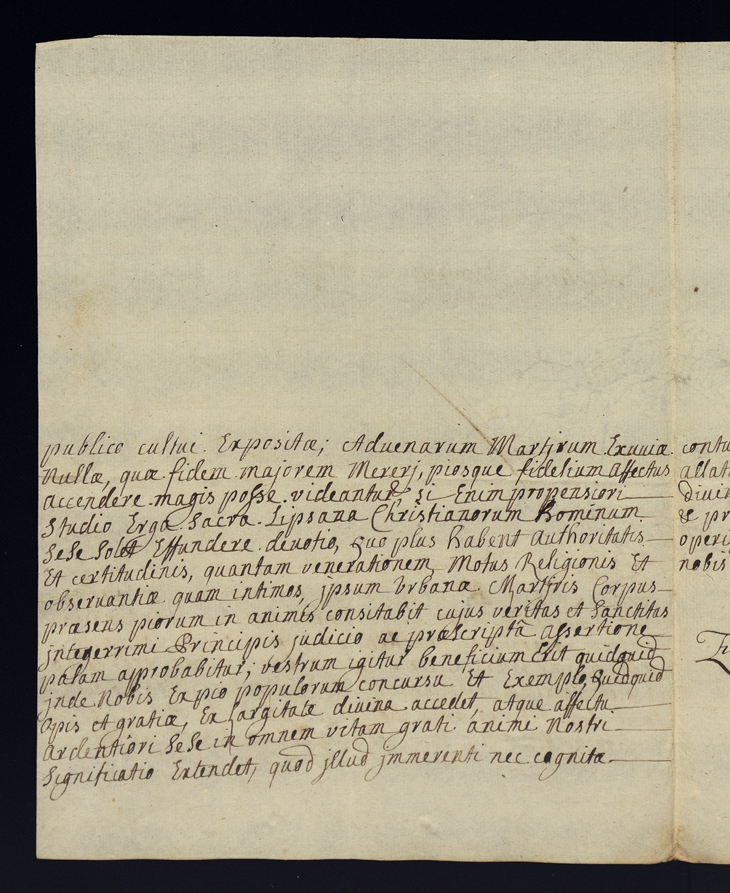 publico cultui Expositæ; Advenarum Martyrum Exuviæ
Nullæ, quæ fidem majorem Mererj, piosque fidelium affectus
accendere magis posse videantur? si Enim propensiori
Studio Erga Sacra Lipsana Christianorum Hominum
Sese solet Effundere devotio, quo plus habent Authoritatis
Et certitudinis, quantam venerationem, Motus Religionis Et
observantiæ quam intimos, jpsum Urbanæ Martyris Corpus
præsens piorum in animis consitabit cujus veritas et Sanctitas
jntegerrimi Principis judicio ac præscriptâ assertione
palam approbabitur; vestrum igitur beneficium Erit quidquid
jnde Nobis Ex pio populorum concursu Et Exemplo, Quidquid
Opis et gratiæ, Ex Largitate divina accedet, atque affectu
ardentiori Sese in omnem vitam grati animi Nostri
Significatio Extendet, quod jllud jmmerenti nec cognita
allat
operi
nobis